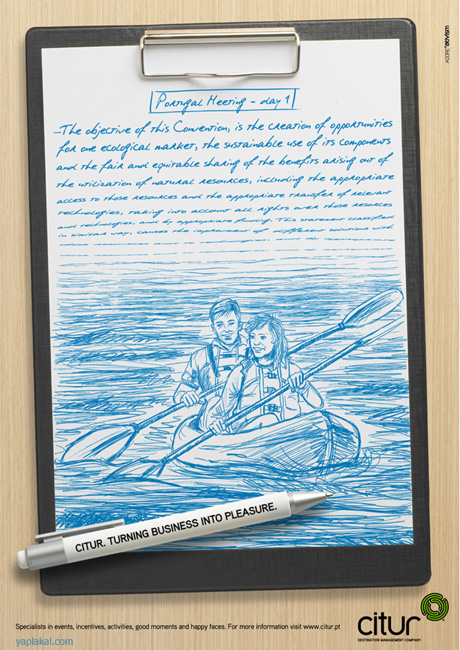 Portugal Meeting - day 1
- The objective of this Convention, is the creation of opportunities
for one ecological market, the sustainable use of its components
and the fair and equitable sharing of the benefits arising out of
the utilization of natural resources, including the appropriate
access to those resources and the appropriate transfer of relevant
technologies, taking into account all rights over those resources
and technologies, and by appropriate This statement classified
in similar way, causes the of different with
CITUR. TURNING BUSINESS INTO PLEASURE.
Specialists in events, incentives, activities, good moments and happy faces. For more information visit www.citur.pt
citur
DESTINATION MANAGEMENT COMPANY
yaplakal.com